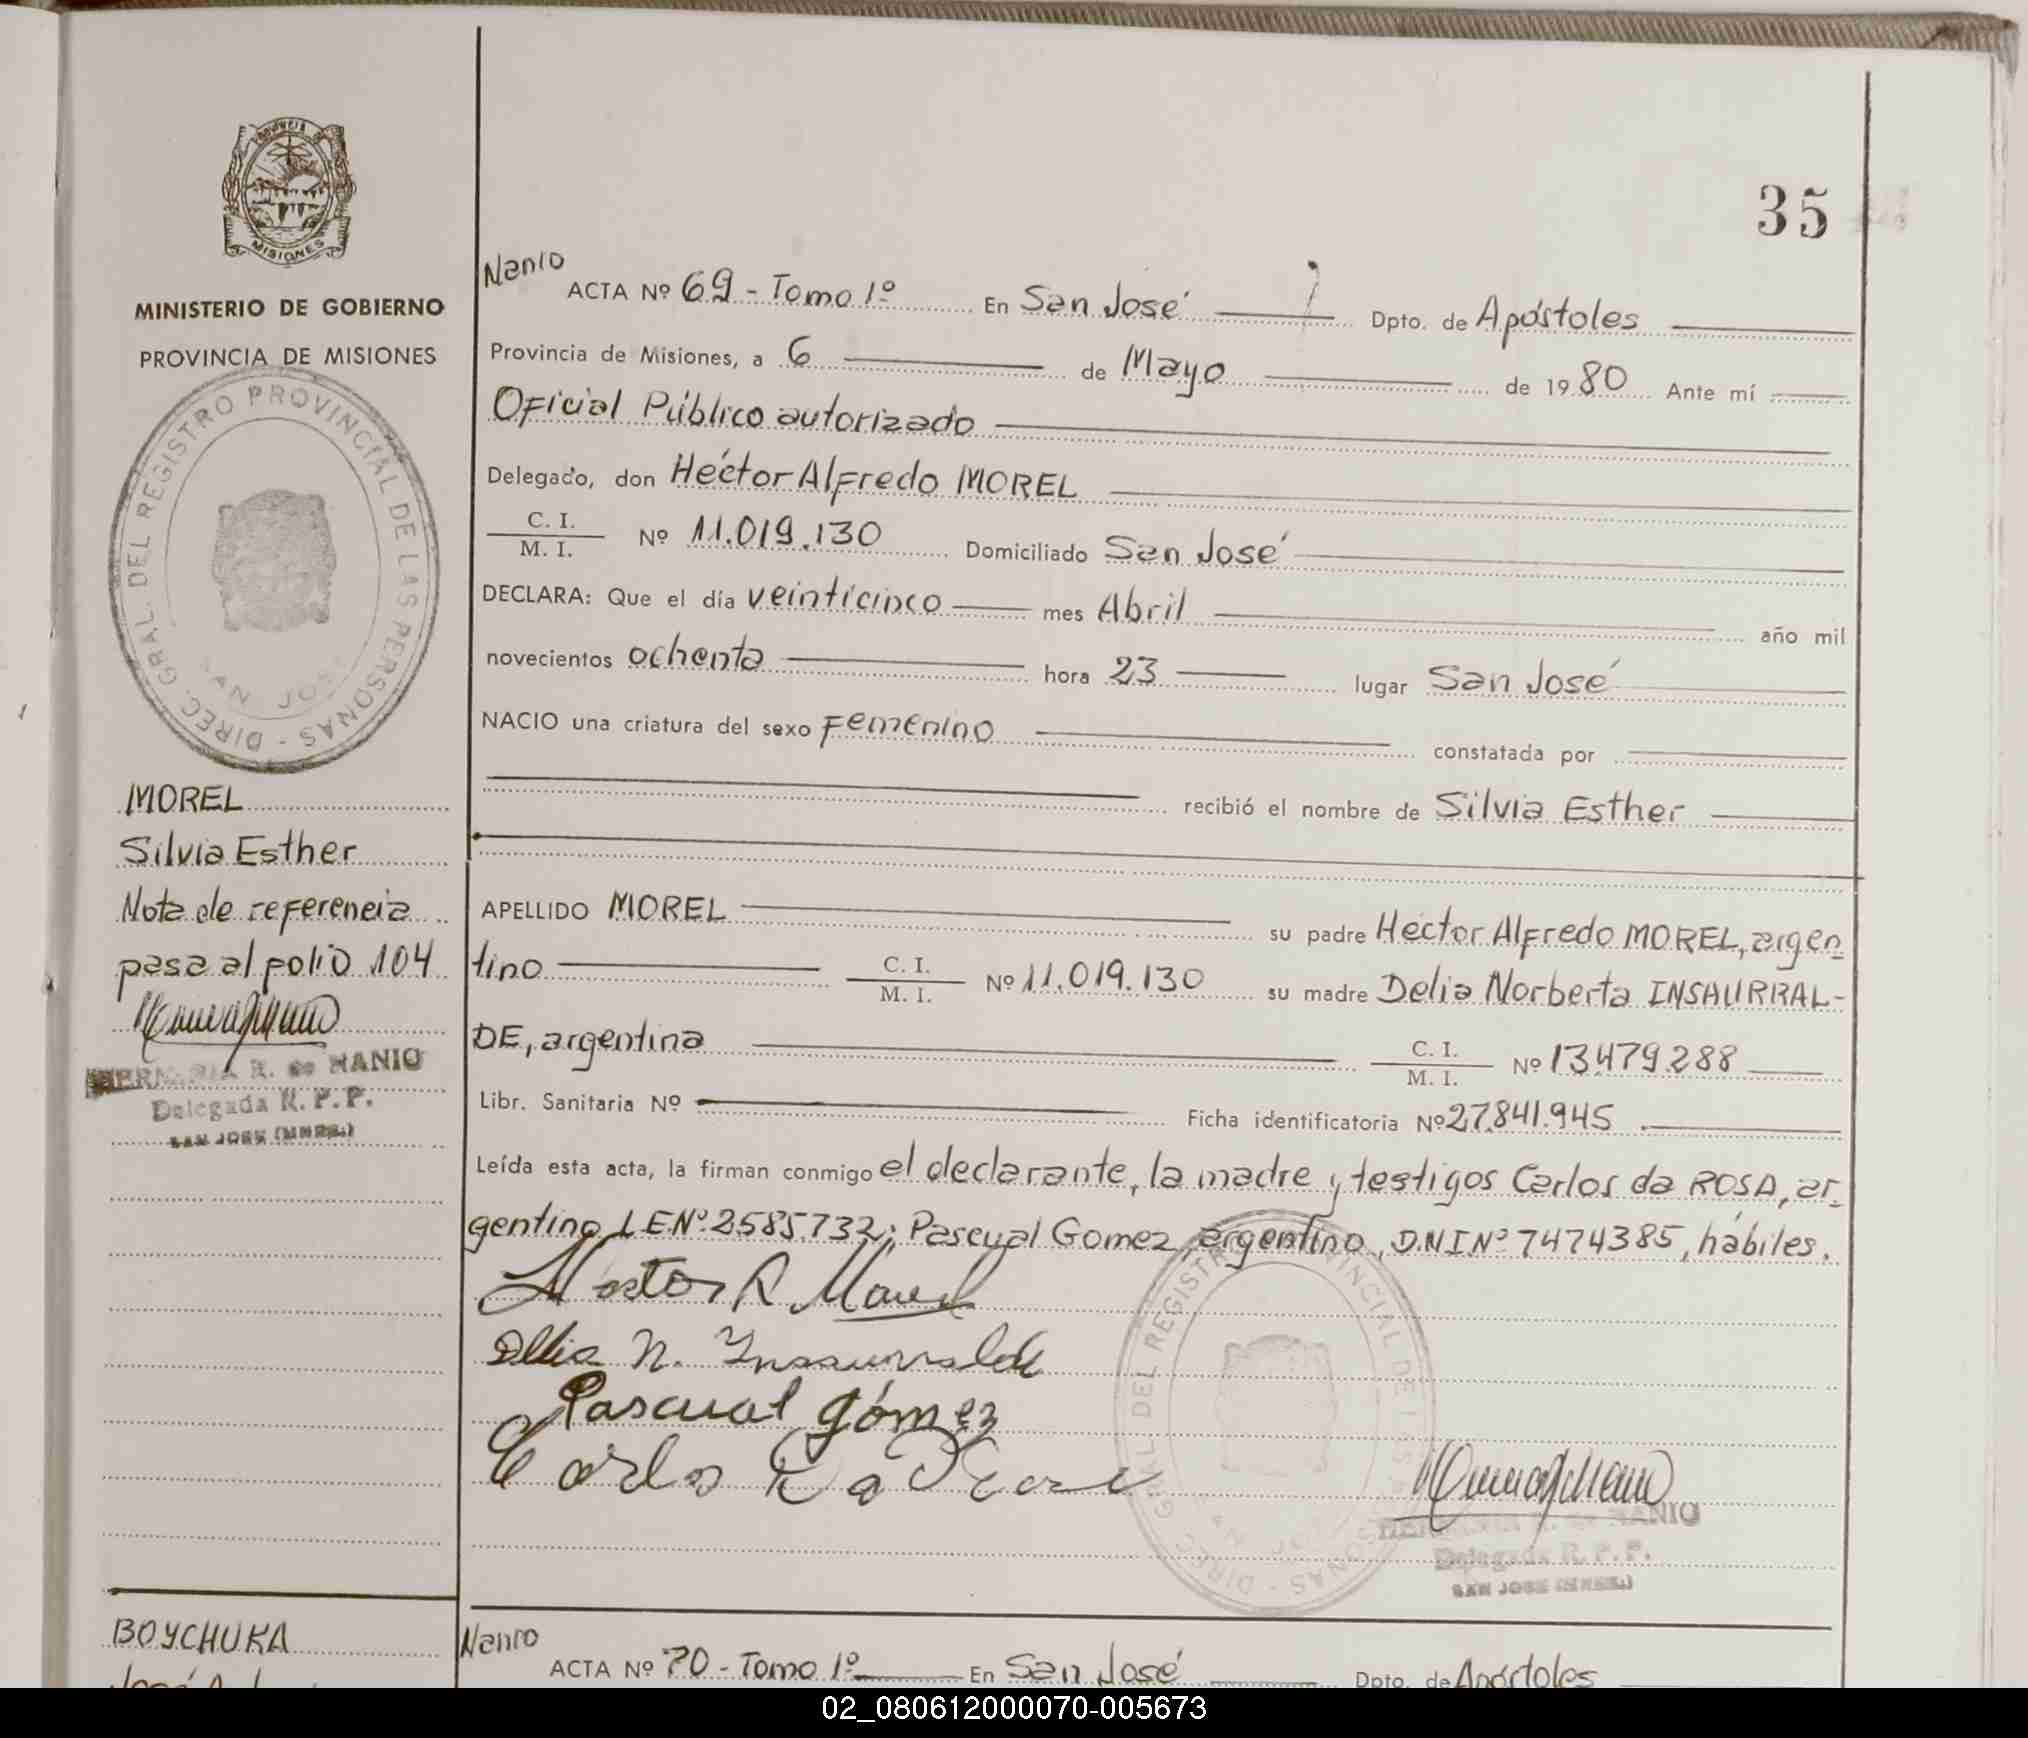 PROVINCIA DE
MISIONES
MINISTERIO DE GOBIERNO
PROVINCIA DE MISIONES
DIREC. GRAL. DEL REGISTRO PROVINCIAL DE LAS PERSONAS -
SAN JOSE
MOREL
Silvia Esther
Nota de referencia
pasa al folio 104
R. de NANIO
Delegada R. P. P.
SAN JOSE (MNES.)
35
Nanio
ACTA Nº 69 - Tomo 1º En San José Dpto. de Apóstoles
Provincia de Misiones, a 6 de Mayo de 1980 Ante mí
Oficial Público autorizado
Delegado, don Héctor Alfredo MOREL
C. I.
M. I. Nº 11.019.130 Domiciliado San José
DECLARA: Que el día veinticinco mes Abril año mil
novecientos ochenta hora 23 lugar San José
NACIO una criatura del sexo Femenino constatada por
recibió el nombre de Silvia Esther
APELLIDO MOREL su padre Héctor Alfredo MOREL, argen
tino C. I.
M. I. Nº 11.019.130 su madre Delia Norberta INSAURRAL-
DE, argentina C. I.
M. I. Nº 13.479.288
Libr. Sanitaria Nº Ficha identificatoria Nº 27.841.945
Leída esta acta, la firman conmigo el declarante, la madre y testigos Carlos da ROSA, ar
gentino LE.Nº 2585.732; Pascual Gomez, argentino, D.N.I Nº 7474385, hábiles.
Hector A Morel
Delia N. Insaurralde
Pascual Gómez
Carlos Da
DIREC. GRAL. DEL REGISTRO PROVINCIAL DE LAS PERSONAS -
de NANIO
Delegada R. P. P.
SAN JOSE (MNES.)
BOYCHUKA
José
Nanio
ACTA Nº 70 - Tomo 1º En San José Dpto. de Apóstoles
02_080612000070-005673